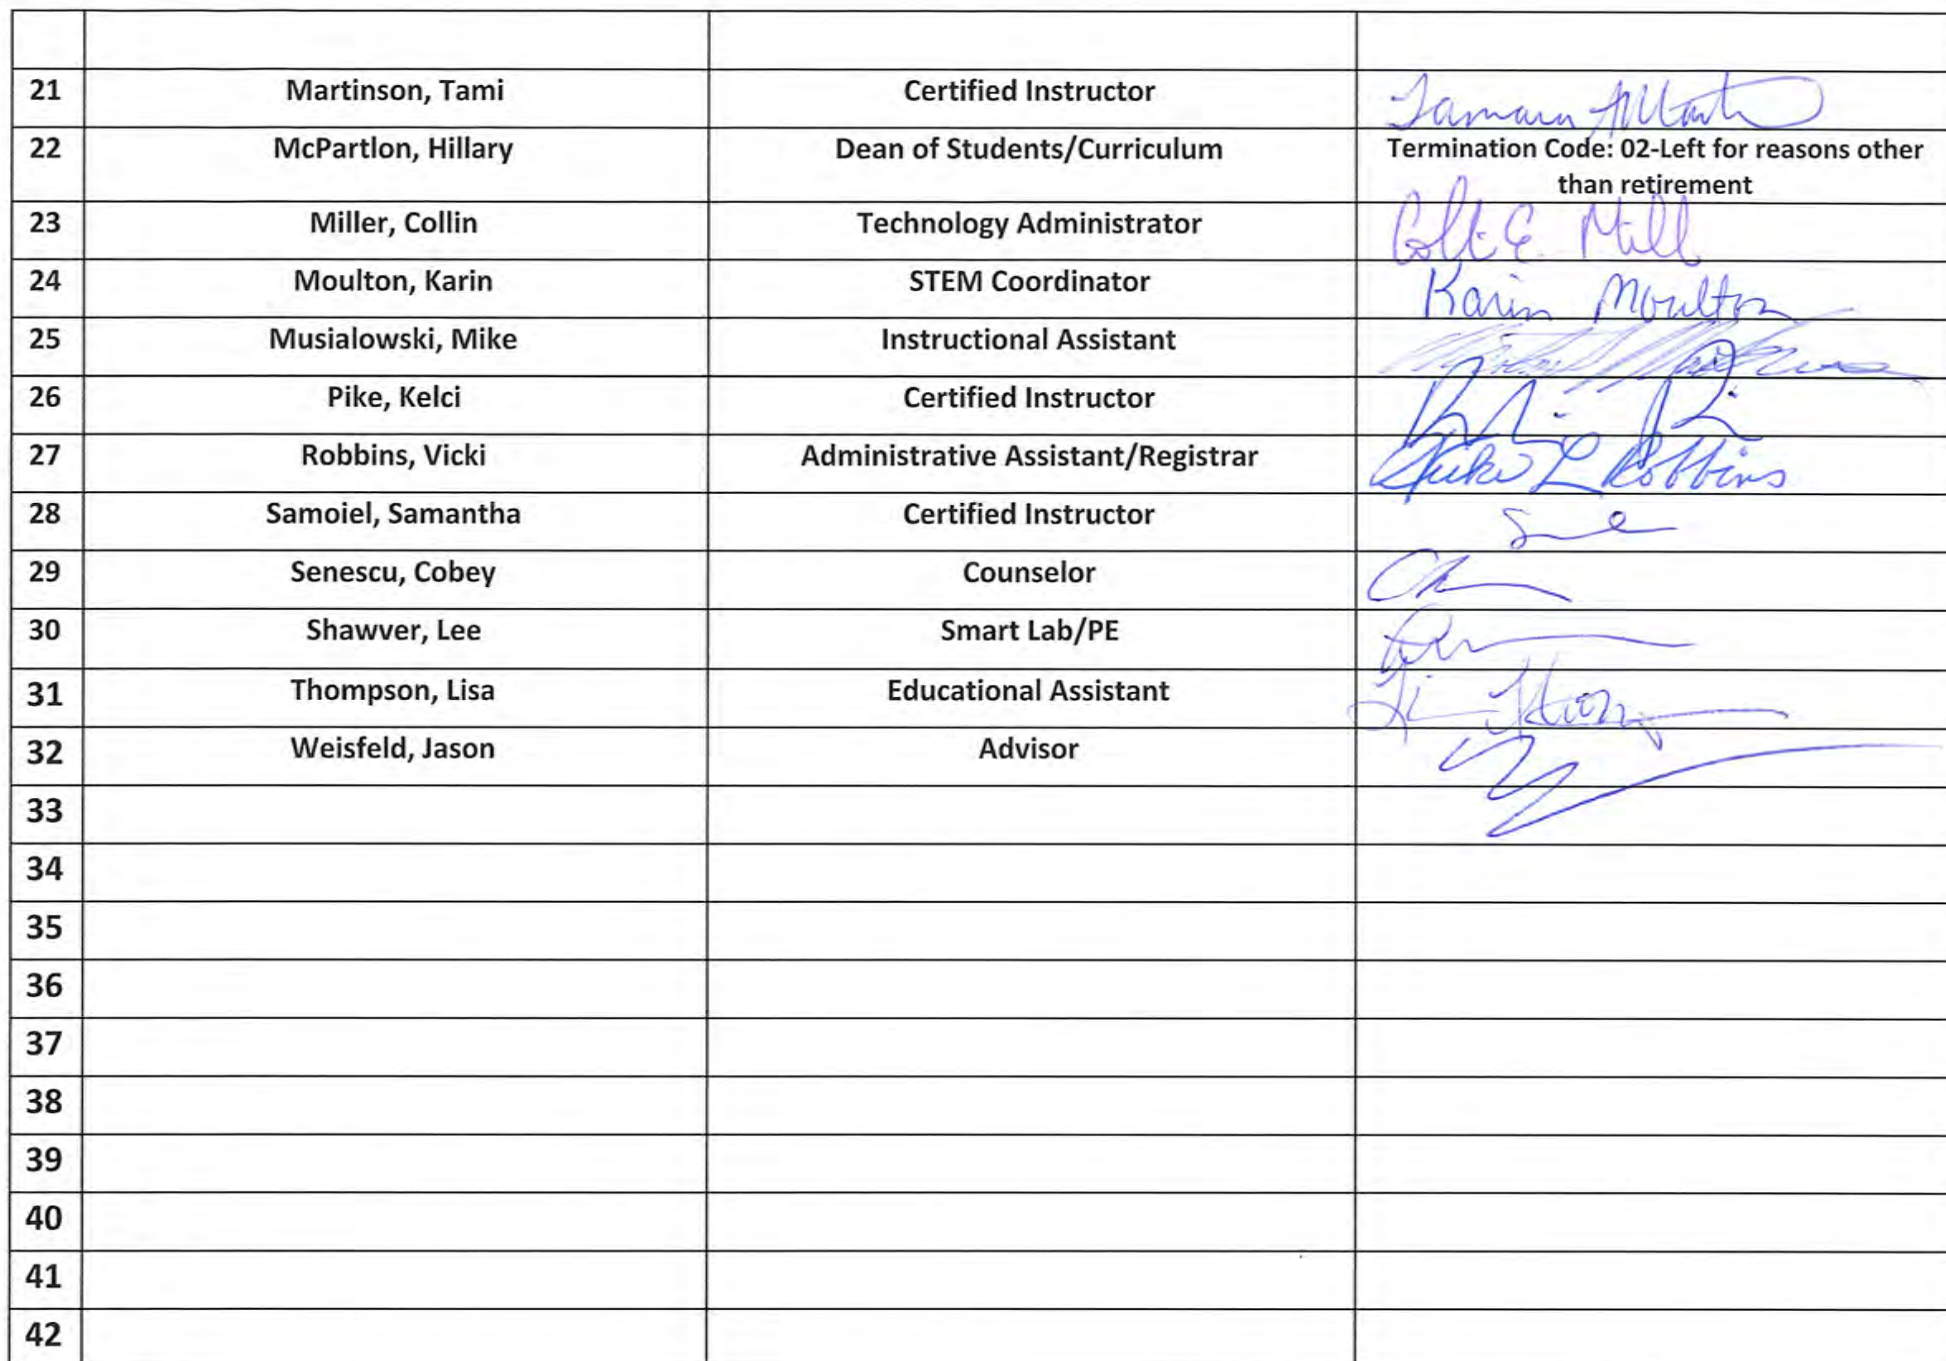 21 Martinson, Tami Certified Instructor Tamara
22 McPartlon, Hillary Dean of Students/Curriculum Termination Code: 02-Left for reasons other
than retirement
23 Miller, Collin Technology Administrator
24 Moulton, Karin STEM Coordinator Karin Moulton
25 Musialowski, Mike Instructional Assistant
26 Pike, Kelci Certified Instructor
27 Robbins, Vicki Administrative Assistant/Registrar L Robbins
28 Samoiel, Samantha Certified Instructor
29 Senescu, Cobey Counselor
30 Shawver, Lee Smart Lab/PE
31 Thompson, Lisa Educational Assistant
32 Weisfeld, Jason Advisor
33
34
35
36
37
38
39
40
41
42